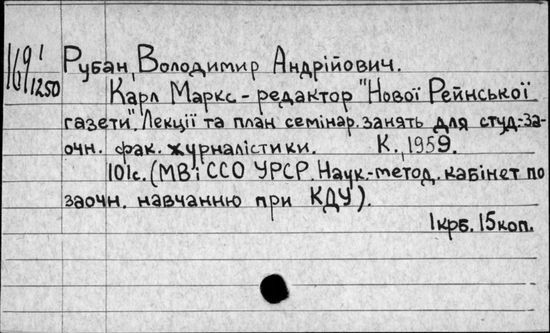 169¹/1250 Рубан, Володимир Андрійович.
Карл Маркс - редактор "Нової Рейнської
газети". Лекції та план семінар. занять для студ.-за-
очн. фак. журналістики. К., 1959.
101с. (МВ і ССО УРСР. Наук.-метод. кабінет по
заочн. навчанню при КДУ).
1крб. 15коп.